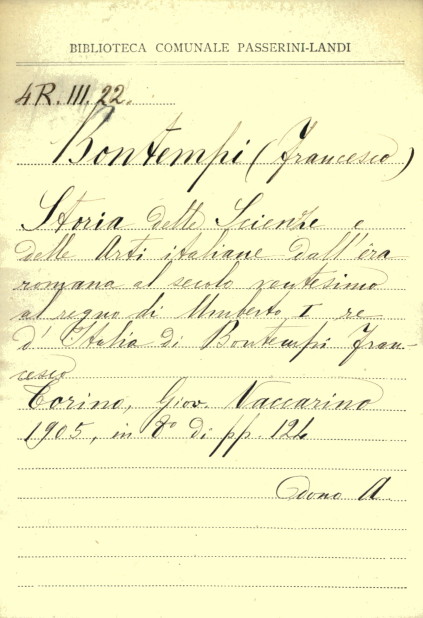 BIBLIOTECA COMUNALE PASSERINI-LANDI
4R.III.22.
Bontempi (Francesco)
Storia delle Scienze e
delle Arti italiane dall'éra
romana al secolo ventesimo
al regno di Umberto I re
d'Italia di Bontempi Fran-
cesco
Torino, Giov. Vaccarino
1905, in 8º di pp. 124
dono A.